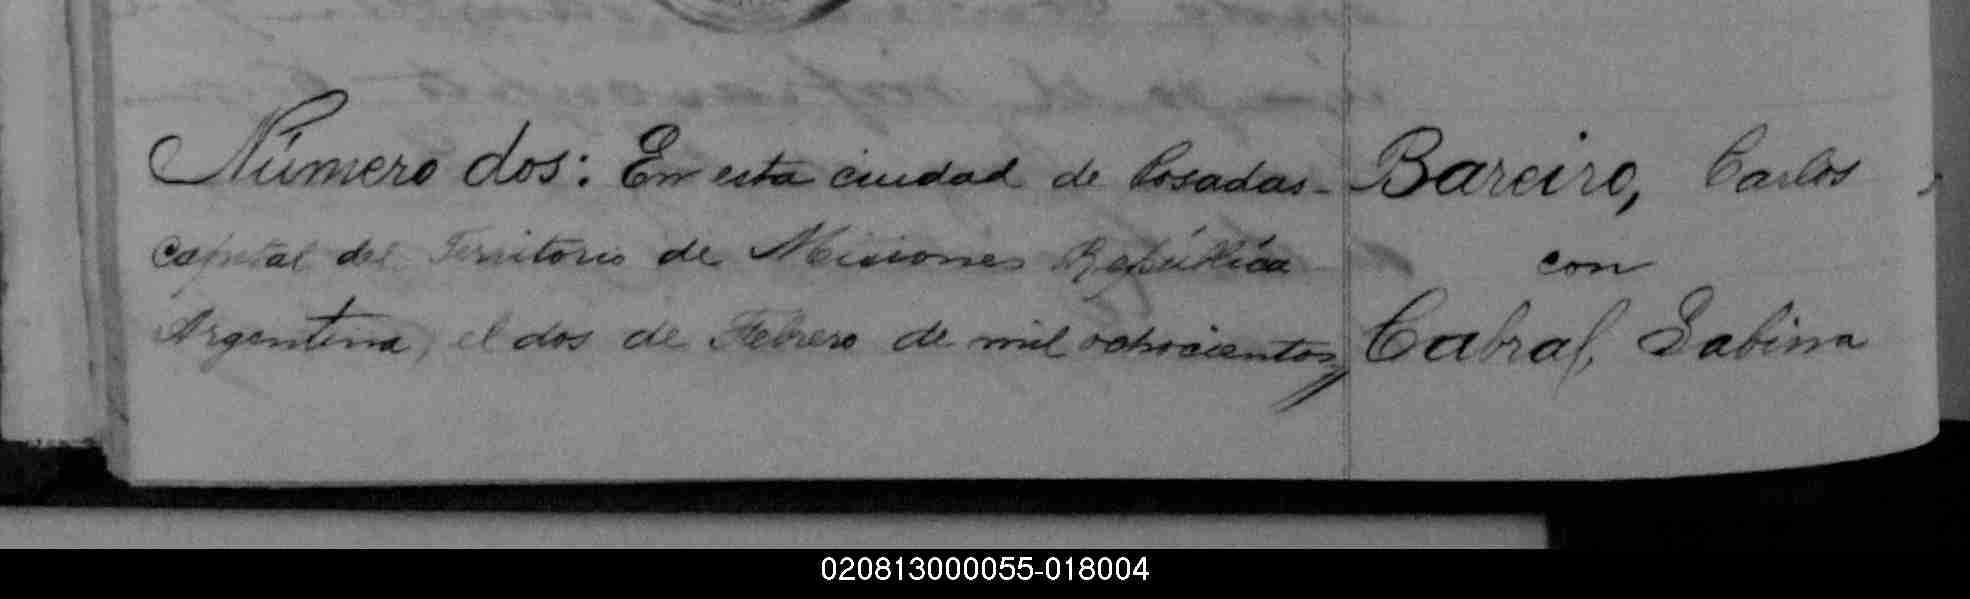 Número dos: En esta ciudad de Posadas-
capital del Territorio de Misiones República
Argentina, el dos de Febrero de mil ochocientos
Bareiro, Carlos
con
Cabral, Sabina
020813000055-018004